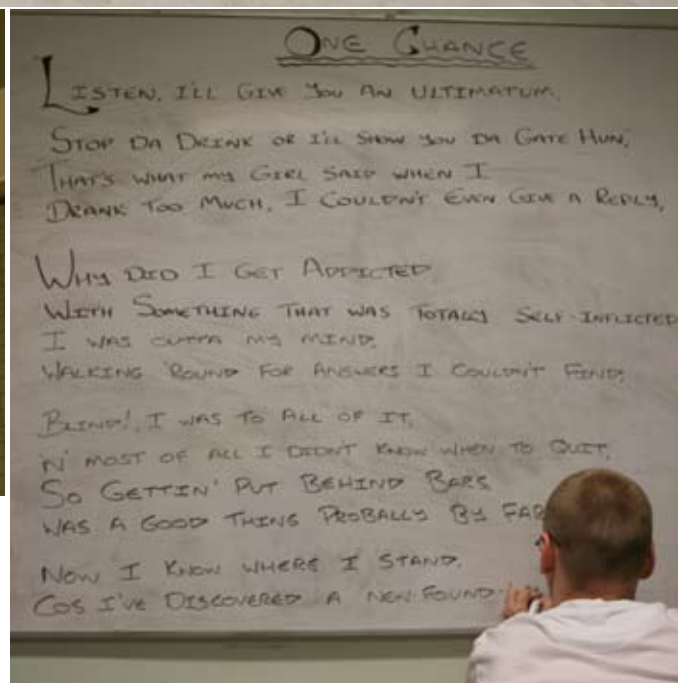 ONE CHANCE
LISTEN, I'LL GIVE YOU AN ULTIMATUM,
STOP DA DRINK OR I'LL SHOW YOU DA GATE HUN,
THAT'S WHAT MY GIRL SAID WHEN I
DRANK TOO MUCH, I COULDN'T EVEN GIVE A REPLY,
WHY DID I GET ADDICTED,
WITH SOMETHING THAT WAS TOTALLY SELF-INFLICTED
I WAS OUTTA MY MIND,
WALKING 'ROUND FOR ANSWERS I COULDN'T FIND,
BLIND!, I WAS TO ALL OF IT,
'N' MOST OF ALL I DIDN'T KNOW WHEN TO QUIT,
SO GETTIN' PUT BEHIND BARS
WAS A GOOD THING PROBALLY BY FAR
NOW I KNOW WHERE I STAND,
COS I'VE DISCOVERED A NEW-FOUND